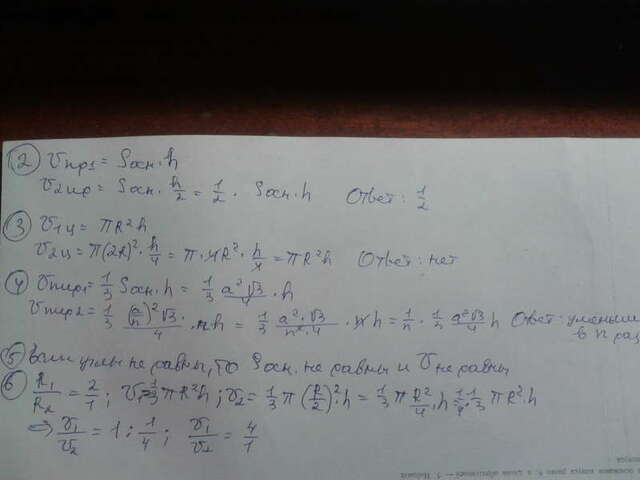 ② Vпр1 = Sосн·h
V2пр = Sосн · h/2 = 1/2 · Sосн·h Ответ: 1/2
③ V1ц = πR²h
V2ц = π(2R)² · h/4 = π·4R² · h/4 = πR²h Ответ: нет
④ Vпир1 = 1/3 Sосн·h = 1/3 a²√3/4 · h
Vпир2 = 1/3 (a/n)²√3/4 · nh = 1/3 a²·√3/n²·4 · n h = 1/n · 1/3 a²√3/4 h Ответ: уменьш
в n раз
⑤ Если углы не равны, то Sосн. не равны и V не равны
⑥ R1/R2 = 2/1; V1 = 1/3πR²h; V2 = 1/3 π (R/2)²·h = 1/3 π R²/4 · h = 1/4 · 1/3 πR²·h
⇒ V1/V2 = 1 : 1/4; V1/V2 = 4/1